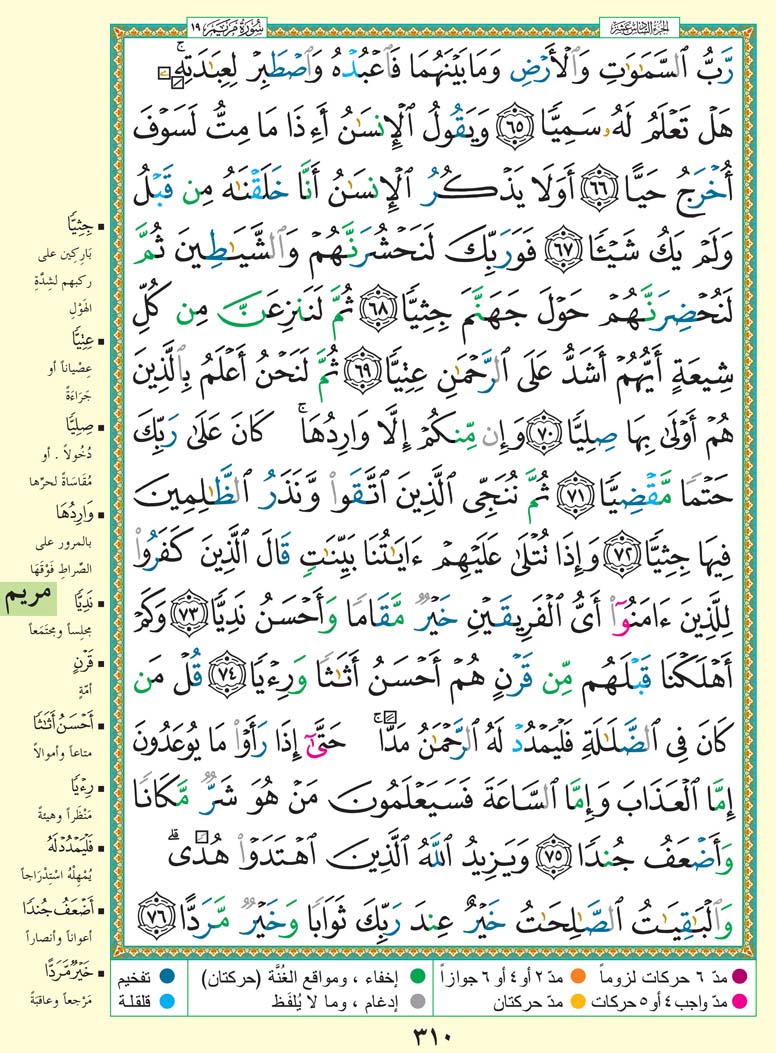 سُورَةُ مَرْيَم ١٩
الجزء السادس عشر
رَّبُّ ٱلسَّمَٰوَٰتِ وَٱلْأَرْضِ وَمَا بَيْنَهُمَا فَٱعْبُدْهُ وَٱصْطَبِرْ لِعِبَٰدَتِهِۦۚ
هَلْ تَعْلَمُ لَهُۥ سَمِيًّا ٦٥ وَيَقُولُ ٱلْإِنسَٰنُ أَءِذَا مَا مِتُّ لَسَوْفَ
أُخْرَجُ حَيًّا ٦٦ أَوَلَا يَذْكُرُ ٱلْإِنسَٰنُ أَنَّا خَلَقْنَٰهُ مِن قَبْلُ
وَلَمْ يَكُ شَيْـًٔا ٦٧ فَوَرَبِّكَ لَنَحْشُرَنَّهُمْ وَٱلشَّيَٰطِينَ ثُمَّ
لَنُحْضِرَنَّهُمْ حَوْلَ جَهَنَّمَ جِثِيًّا ٦٨ ثُمَّ لَنَنزِعَنَّ مِن كُلِّ
شِيعَةٍ أَيُّهُمْ أَشَدُّ عَلَى ٱلرَّحْمَٰنِ عِتِيًّا ٦٩ ثُمَّ لَنَحْنُ أَعْلَمُ بِٱلَّذِينَ
هُمْ أَوْلَىٰ بِهَا صِلِيًّا ٧٠ وَإِن مِّنكُمْ إِلَّا وَارِدُهَا ۚ كَانَ عَلَىٰ رَبِّكَ
حَتْمًا مَّقْضِيًّا ٧١ ثُمَّ نُنَجِّى ٱلَّذِينَ ٱتَّقَوا۟ وَّنَذَرُ ٱلظَّٰلِمِينَ
فِيهَا جِثِيًّا ٧٢ وَإِذَا تُتْلَىٰ عَلَيْهِمْ ءَايَٰتُنَا بَيِّنَٰتٍ قَالَ ٱلَّذِينَ كَفَرُوا۟
لِلَّذِينَ ءَامَنُوٓا۟ أَىُّ ٱلْفَرِيقَيْنِ خَيْرٌ مَّقَامًا وَأَحْسَنُ نَدِيًّا ٧٣ وَكَمْ
أَهْلَكْنَا قَبْلَهُم مِّن قَرْنٍ هُمْ أَحْسَنُ أَثَٰثًا وَرِءْيًا ٧٤ قُلْ مَن
كَانَ فِى ٱلضَّلَٰلَةِ فَلْيَمْدُدْ لَهُ ٱلرَّحْمَٰنُ مَدًّا ۚ حَتَّىٰٓ إِذَا رَأَوْا۟ مَا يُوعَدُونَ
إِمَّا ٱلْعَذَابَ وَإِمَّا ٱلسَّاعَةَ فَسَيَعْلَمُونَ مَنْ هُوَ شَرٌّ مَّكَانًا
وَأَضْعَفُ جُندًا ٧٥ وَيَزِيدُ ٱللَّهُ ٱلَّذِينَ ٱهْتَدَوْا۟ هُدًى ۗ
وَٱلْبَٰقِيَٰتُ ٱلصَّٰلِحَٰتُ خَيْرٌ عِندَ رَبِّكَ ثَوَابًا وَخَيْرٌ مَّرَدًّا ٧٦
جِثِيًّا
بَارِكين على
ركبهم لشِدَّةِ
الهَوْلِ
عِتِيًّا
عِصْياناً أو
جَرَاءَةً
صِلِيًّا
دُخُولاً . أو
مُقَاسَاةً لحرِّها
وَارِدُهَا
بالمرور على
الصِّراطِ فَوْقَهَا
نَدِيًّا
مجلساً ومجتمَعاً
قَرْنٍ
أمّةٍ
أَحْسَنُ أَثَٰثًا
متاعاً وأموالاً
رِءْيًا
مَنْظَراً وهيئةً
فَلْيَمْدُدْ لَهُ
يُمْهِلْهُ اسْتِدْرَاجاً
أَضْعَفُ جُندًا
أعواناً وأنصاراً
خَيْرٌ مَّرَدًّا
مَرْجعاً وعاقبةً
مريم
مدّ ٦ حركات لزوماً
مدّ ٢ أو ٤ أو ٦ جوازاً
إخفاء ، ومواقع الغُنَّة (حركتان)
تفخيم
مدّ واجب ٤ أو ٥ حركات
مدّ حركتان
إدغام ، وما لا يُلفَظ
قلقلة
٣١٠